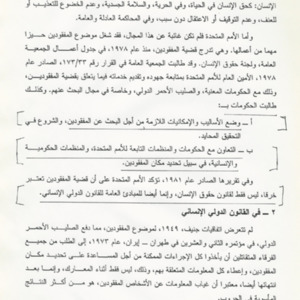 الإنسان، كحق الإنسان في الحياة، وفي الحرية، والسلامة الجسدية، وعدم الخضوع للتعذيب أو
للعنف، وعدم التوقيف أو الاعتقال دون سبب، وفي المحاكمة العادلة والعامة.
وأما الأمم المتحدة فلم تكن غائبة عن هذا المجال، فقد شغل موضوع المفقودين جزءاً
مهما من أعمالها. وهي تدرج قضية المفقودين، منذ عام ١٩٧٨، في جدول أعمال الجمعية
العامة، ولجنة حقوق الإنسان. وقد طالبت الجمعية العامة في القرار رقم ١٧٣/٣٣، الصادر عام
١٩٧٨، الأمين العام للأمم المتحدة بمتابعة جهوده وتقديم خدماته فيما يتعلق بقضية المفقوديـن،
وذلك مع الحكومات المعنية، والصليب الأحمر الدولي، وخاصة في مجال البحث عنهم. وكذلك
طالبت الحكومات بـ:
أ ـ وضع الأساليب والإمكانيات اللازمة من أجل البحث عن المفقودين، والشروع في
التحقيق المحايد.
ب ـ التعاون مع الحكومات والمنظمات التابعة للأمم المتحدة، والمنظمات الحكوميـة
والإنسانية، في سبيل تحديد مكان المفقودين.
وفي تقريرها الصادر عام ١٩٨١، تؤكد الأمم المتحدة على أن قضية المفقودين تعتبر
خرقا، ليس فقط لقانون حقوق الإنسان، وإنما أيضا للمبادئ العامة للقانون الدولي الإنساني.
٢ ـ في القانون الدولي الإنساني
لم تتعرض اتفاقيات جنيف، ١٩٤٩، لموضوع المفقودين، مما دفع الصليب الأحمر
الدولي، في مؤتمره الثاني والعشرين في طهران ـ إيران، عام ١٩٧٣، إلى الطلب من جميـع
الفرقاء المتقاتلين أن يأخذوا كل الإجراءات الممكنة من أجل المساعدة على تحديد مكان
المفقودين، وإعطاء كل المعلومات المتعلقة بهم، وذلك ليس فقط أثناء المعارك، وإنما بعد
انتهائها أيضا، معتبرا أن غياب المعلومات عن الأشخاص المفقودين، هو من النتائج